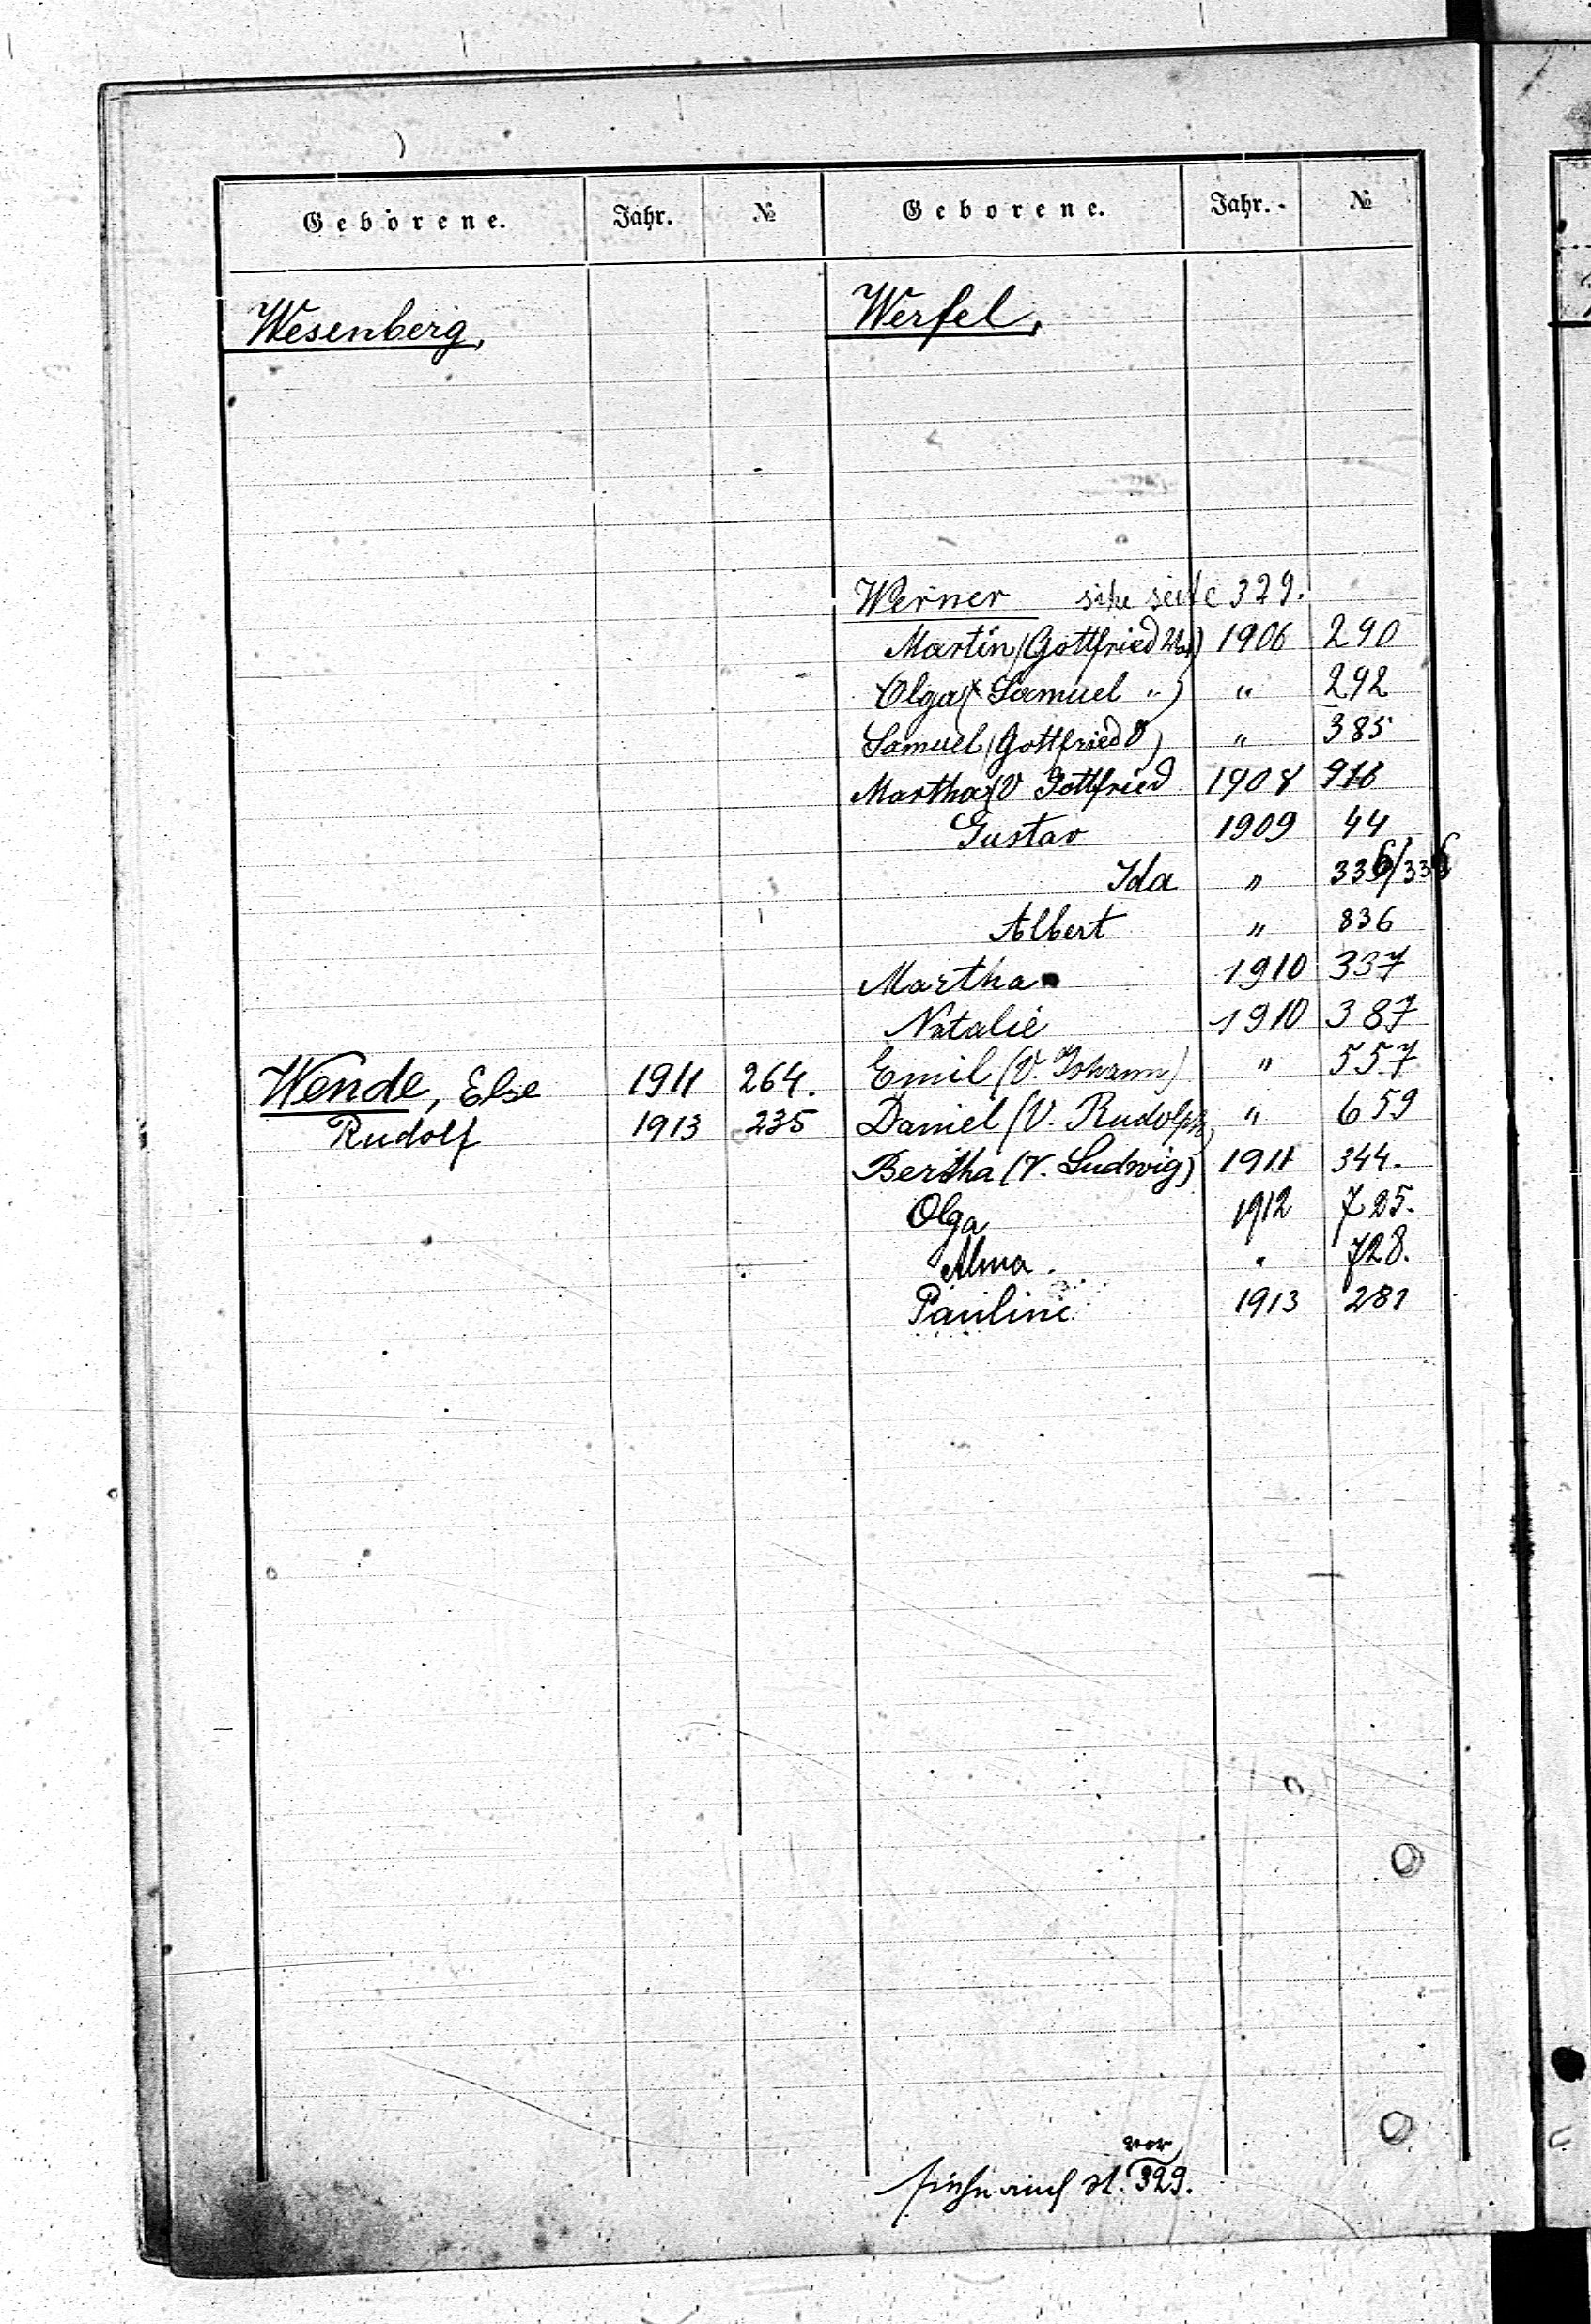 Geborene. Jahr. №
Wesenberg,
Wende, Else 1911 264.
Rudolf 1913 235
Geborene. Jahr. №
Werfel,
Werner sihe seite 329.
Martin (Gottfried Vat) 1906 290
Olga (Samuel „) „ 292
Samuel (Gottfried V) „ 385
Martha (V Gottfried 1908 916
Gustav 1909 44
Ida „ 336/336
Albert „ 836
Martha 1910 337
Natalie 1910 387
Emil (V. Johann) „ 557
Daniel (V. Rudolph) „ 659
Bertha (V. Ludwig) 1911 344.
Olga 1912 725.
Alma . „ 728.
Pauline 1913 281
vor
siehe auch st. 329.